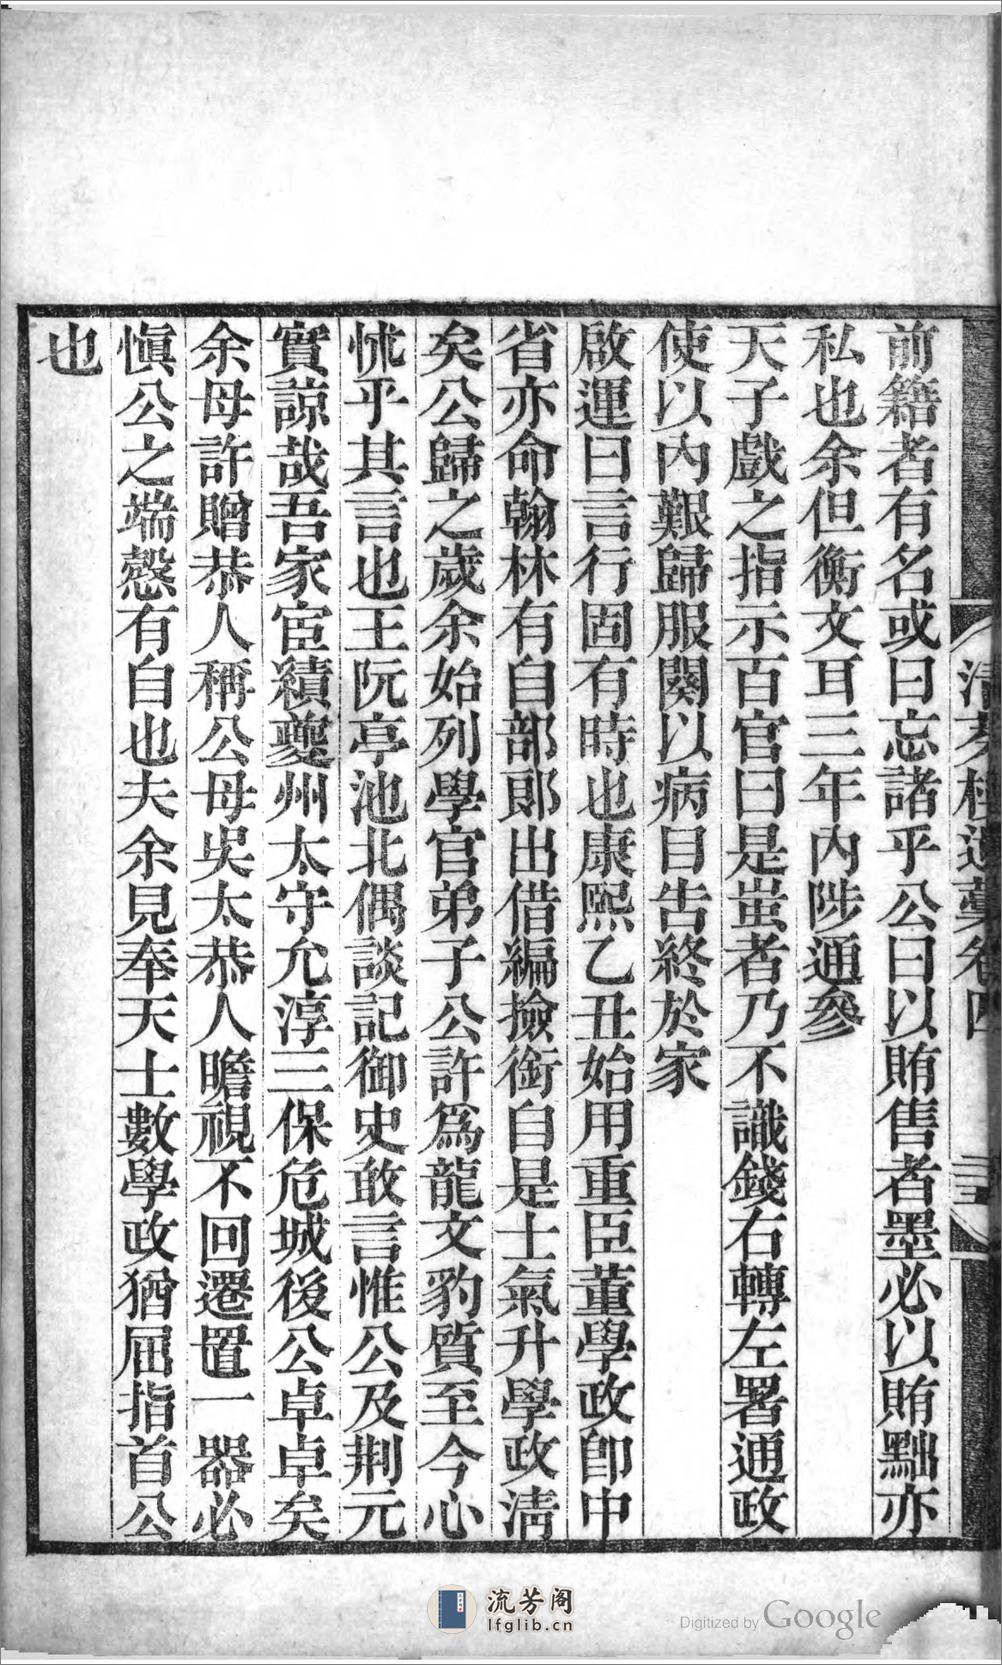 前籍者有名或曰忘諸乎公曰以賄售者墨必以賄黜亦
私也余但衡文耳三年內陟通參
天子戲之指示百官曰是蚩者乃不識錢右轉左署通政
使以內艱歸服闋以病目告終於家
啟運曰言行固有時也康熙乙丑始用重臣董學政卽中
省亦命翰林有自部郎出借編撿銜自是士氣升學政淸
矣公歸之歲余始列學官弟子公許爲龍文豹質至今心
怵乎其言也王阮亭池北偶談記御史敢言惟公及荆元
實諒哉吾家宦績夔州太守允淳三保危城後公卓卓矣
余母許贈恭人稱公母吳太恭人瞻視不回遷置一器必
愼公之端慤有自也夫余見奉天士數學政猶屈指首公
也
卷四
流芳阁
lfglib.cn
Digitized by Google